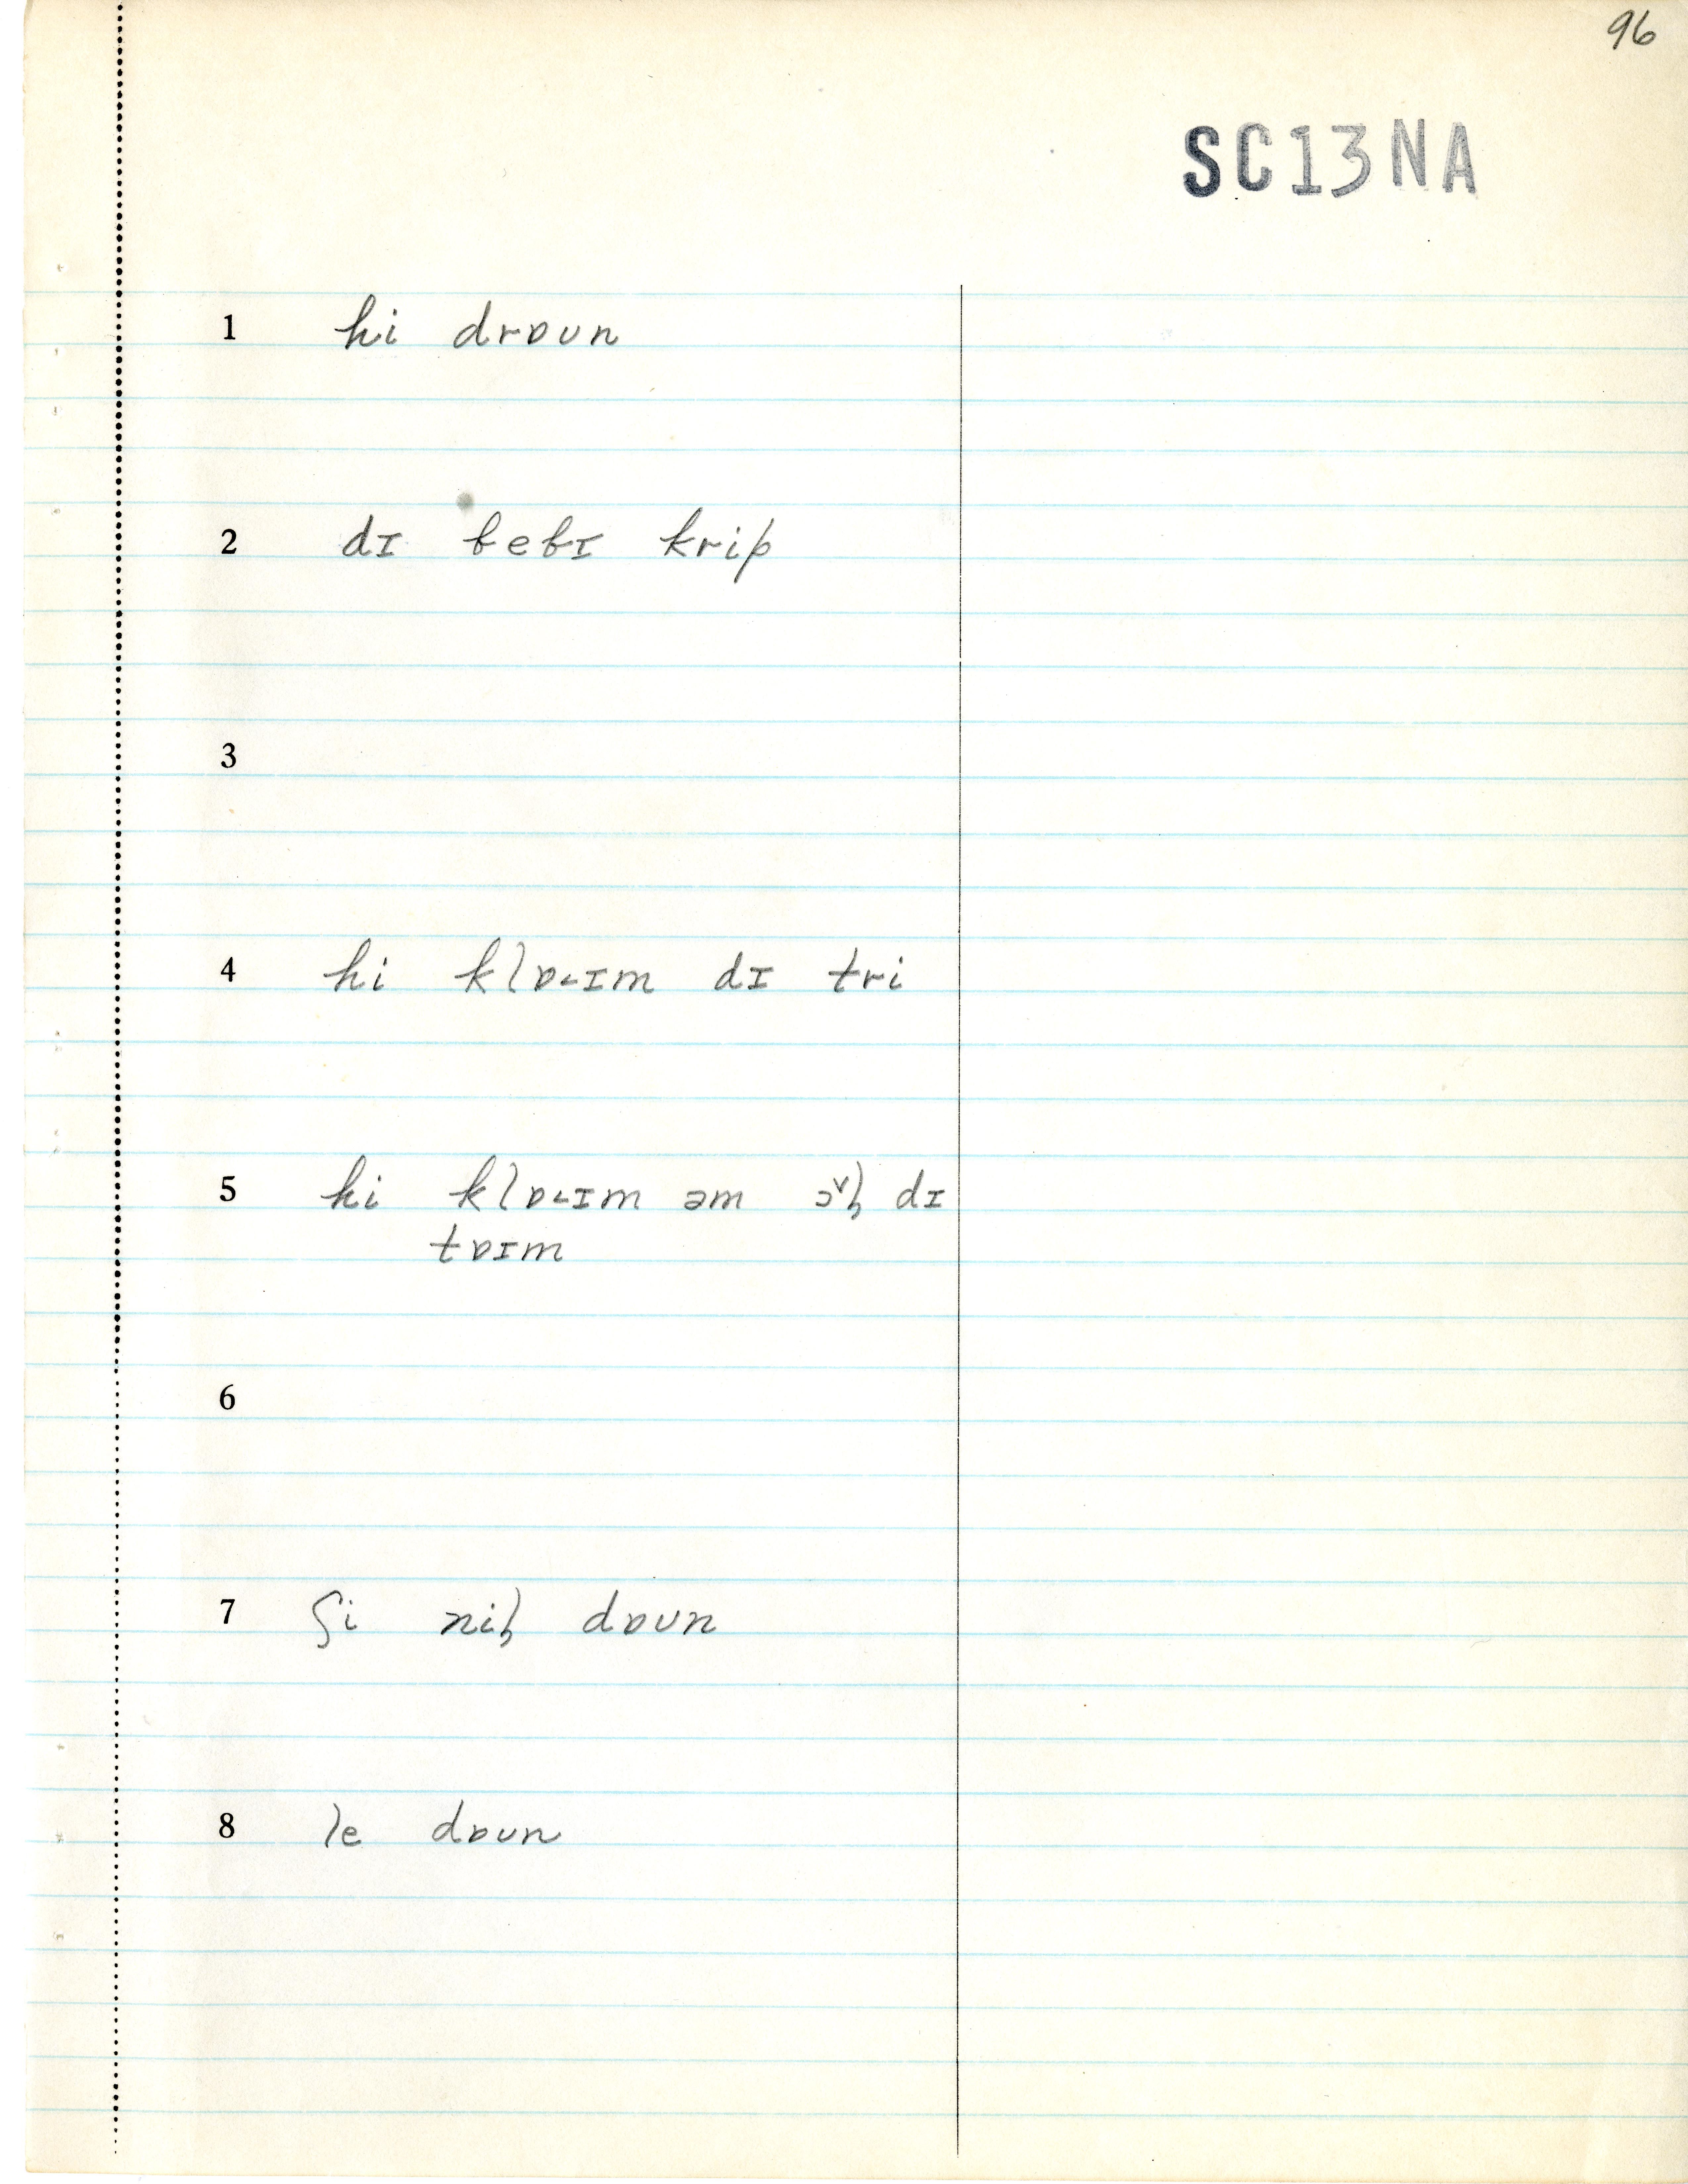 96
SC13NA
1 hi drɒʊn
2 dɪ bebɪ krip
3
4 hi klɒ˂ɪm dɪ tri
5 hi klɒ˂ɪm əm ɔ˅ɫ dɪ
tɒɪm
6
7 ʃi niɫ dɒʊn
8 le dɒʊn